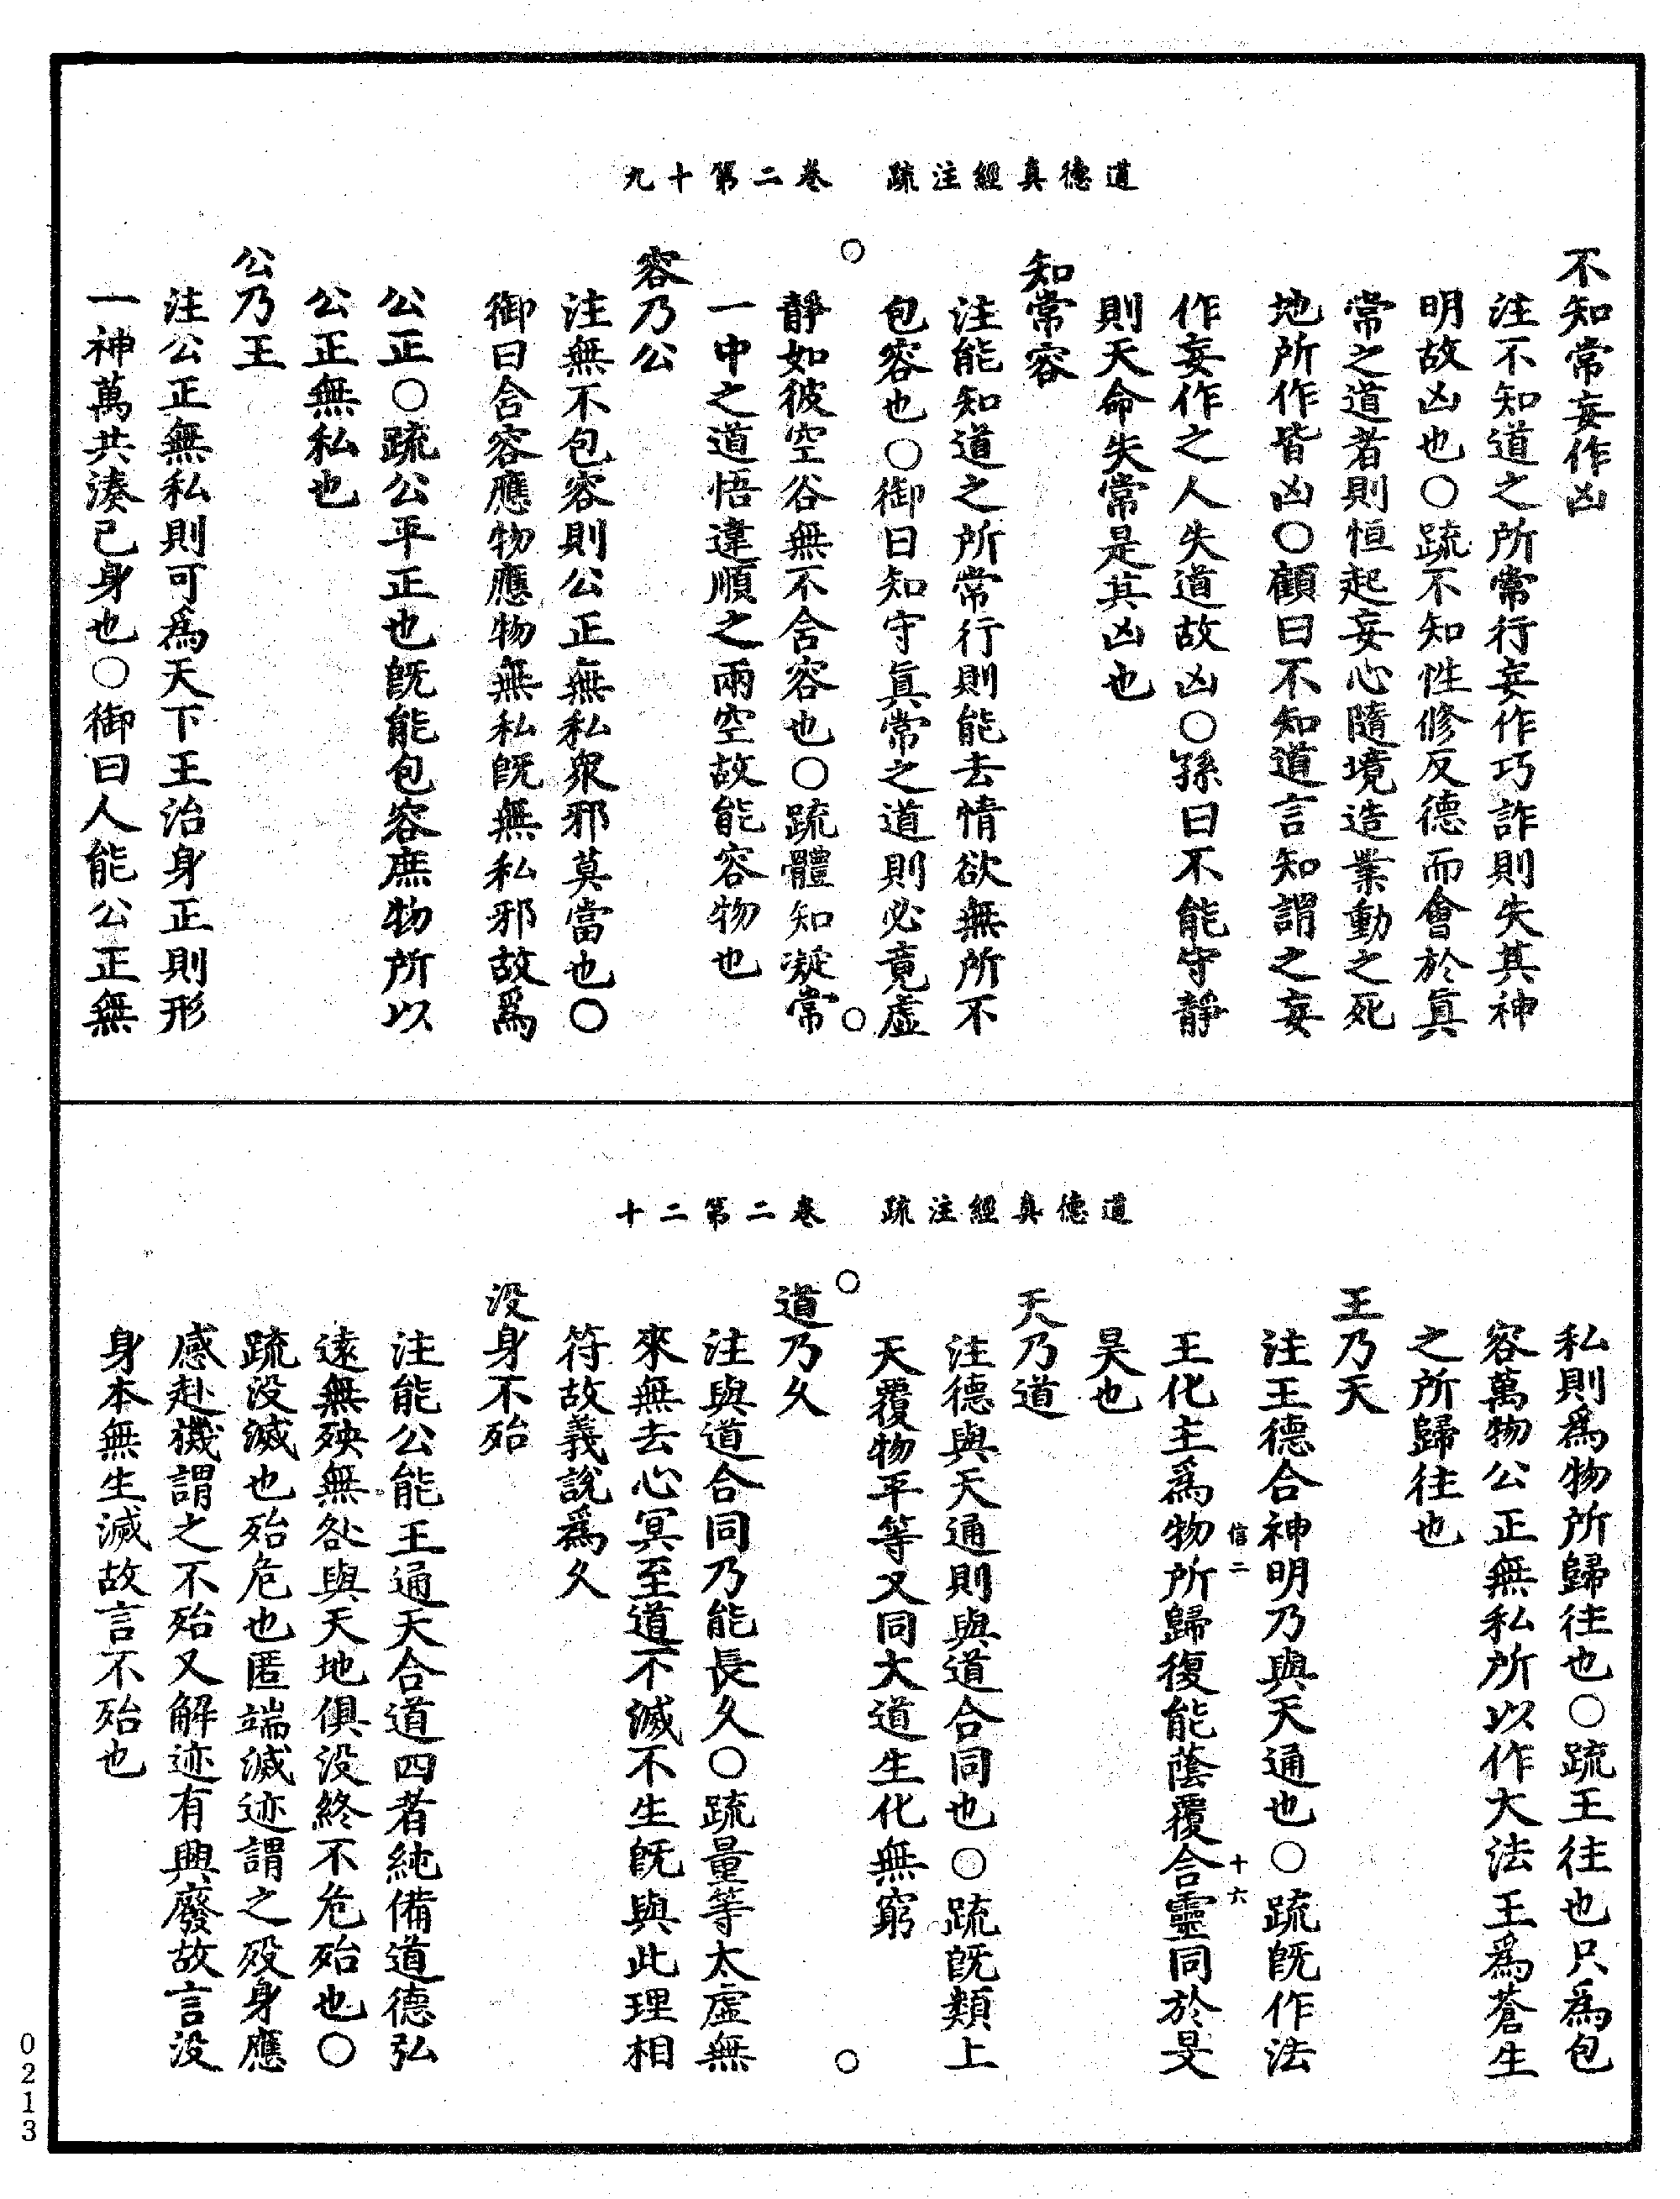 道德真經注疏　卷二第十九
不知常妄作凶
注不知道之所常行妄作巧詐則失其神
明故凶也○疏不知性修反德而會於真
常之道者則恒起妄心隨境造業動之死
地所作皆凶○顧曰不知道言知謂之妄
作妄作之人失道故凶○孫曰不能守靜
則天命失常是其凶也
知常容
注能知道之所常行則能去情欲無所不
包容也○御曰知守真常之道則必竟虛
靜如彼空谷無不含容也○疏體知凝常
一中之道悟違順之兩空故能容物也
容乃公
注無不包容則公正無私衆邪莫當也○
御曰含容應物應物無私既無私邪故爲
公正○疏公平正也既能包容庶物所以
公正無私也
公乃王
注公正無私則可爲天下王治身正則形
一神萬共湊已身也○御曰人能公正無
道德真經注疏　卷二第二十
私則爲物所歸往也○疏王往也只爲包
容萬物公正無私所以作大法王爲蒼生
之所歸往也
王乃天
注王德合神明乃與天通也○疏既作法
信二　十六
王化主爲物所歸復能蔭覆含靈同於旻
昊也
天乃道
注德與天通則與道合同也○疏既類上
天覆物平等又同大道生化無窮
道乃久
注與道合同乃能長久○疏量等太虛無
來無去心冥至道不滅不生既與此理相
符故義說爲久
没身不殆
注能公能王通天合道四者純備道德弘
遠無殃無咎與天地俱没終不危殆也○
疏没滅也殆危也匿端滅迹謂之殁身應
感赴機謂之不殆又解迹有興廢故言没
身本無生滅故言不殆也
0213